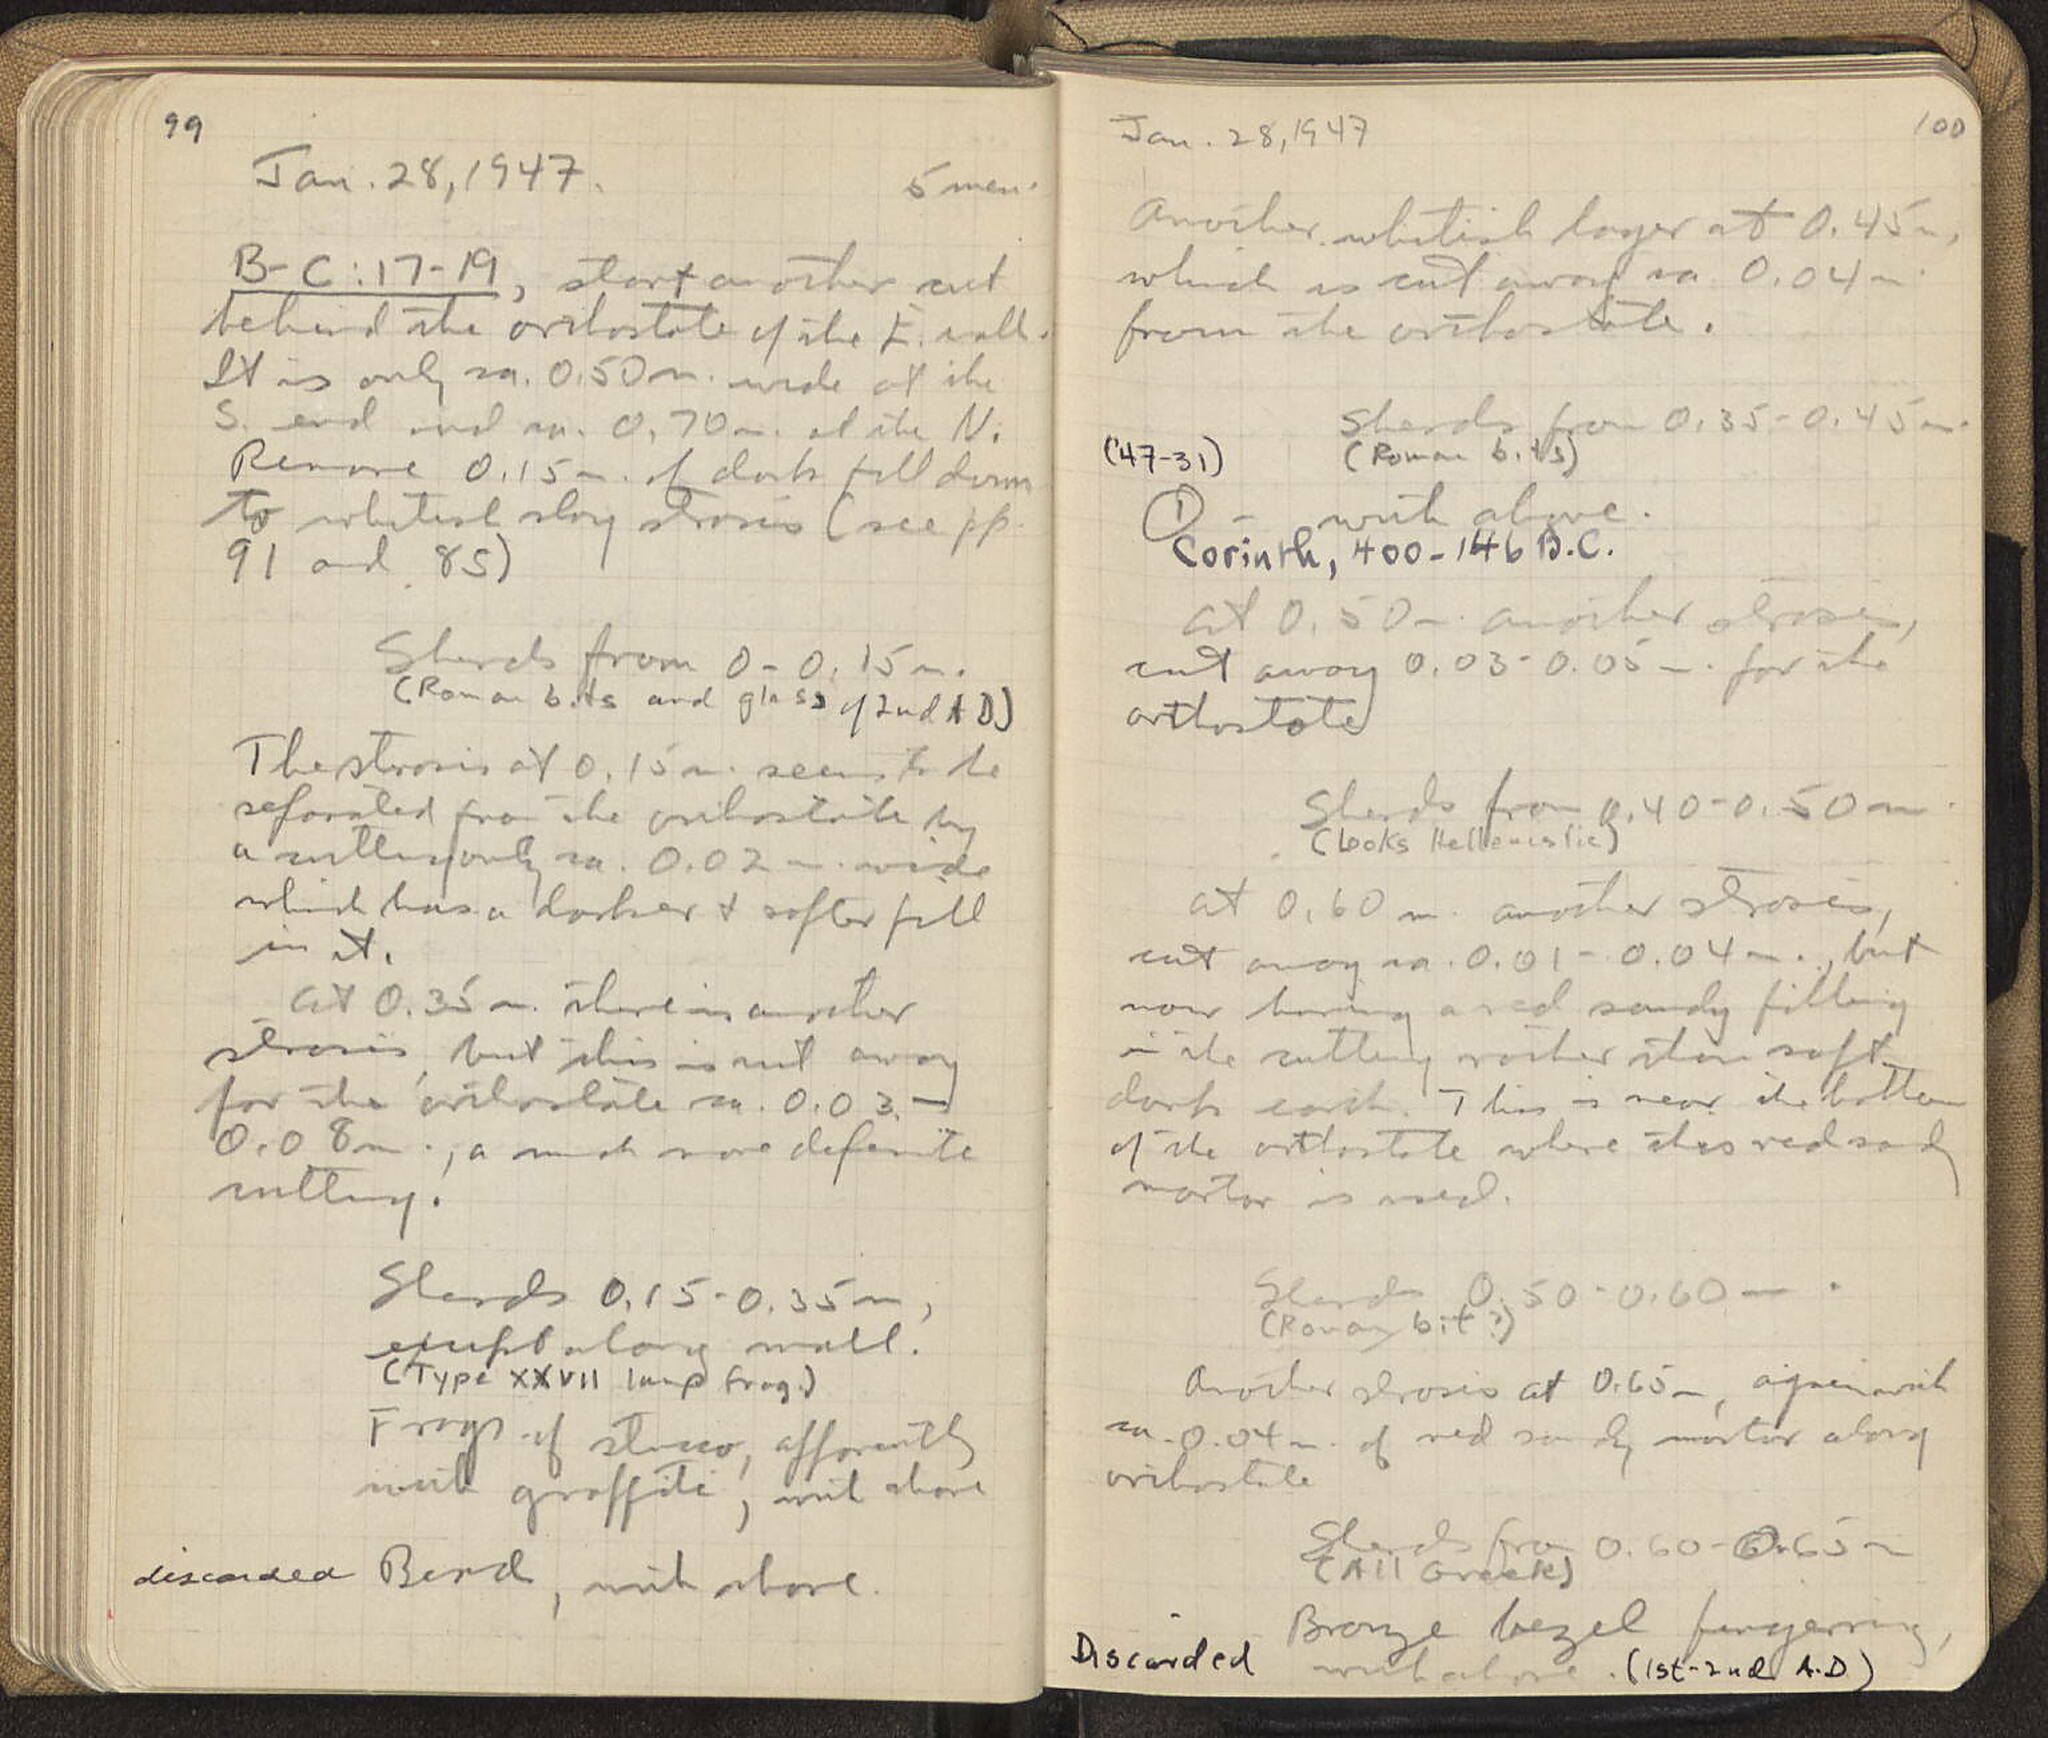 99
Jan. 28, 1947.
5 men.
B-C:17-19, start another cut
behind the orthostate of the E. wall.
It is only ca. 0.50m. wide at the
S. end and ca. 0.70m. at the N.
Remove 0.15m. of dark fill down
to whitish clay strosis (see pp.
91 and 85)
Sherds from 0-0.15m.
(Roman bits and glass of 2nd A D)
The strosis at 0.15m. seems to be
separated from the orthostate by
a cutting only ca. 0.02m. wide
which has a darker & softer fill
in it.
At 0.35m. there is another
strosis, but this is cut away
for the orthostate ca. 0.03-
0.08m., a much more definite
cutting.
Sherds 0.15-0.35m,
except along wall.
(Type XXVII lamp frag.)
Frags of stucco, apparently
with graffiti, with above
discarded Bead, with above.
100
Jan. 28, 1947
Another whitish layer at 0.45m,
which is cut away ca. 0.04m
from the orthostate.
Sherds from 0.35-0.45m.
('47-31) (Roman bits)
① - with above.
Corinth, 400-146 B.C.
At 0.50m. another strosis,
cut away 0.03-0.05m. for the
orthostate
Sherds from 0.40-0.50m.
(Looks Hellenistic)
At 0.60m. another strosis,
cut away ca. 0.01-0.04m., but
now having a red sandy filling
in the cutting rather than soft
dark earth. This is near the bottom
of the orthostate where this red sandy
mortar is used.
Sherds 0.50-0.60m.
(Roman bit?)
Another strosis at 0.65m, again with
ca. 0.04m. of red sandy mortar along
orthostate
Sherds from 0.60-0.65m
(All Greek)
Bronze bezel fingerring,
Discarded with above. (1st-2nd A.D)